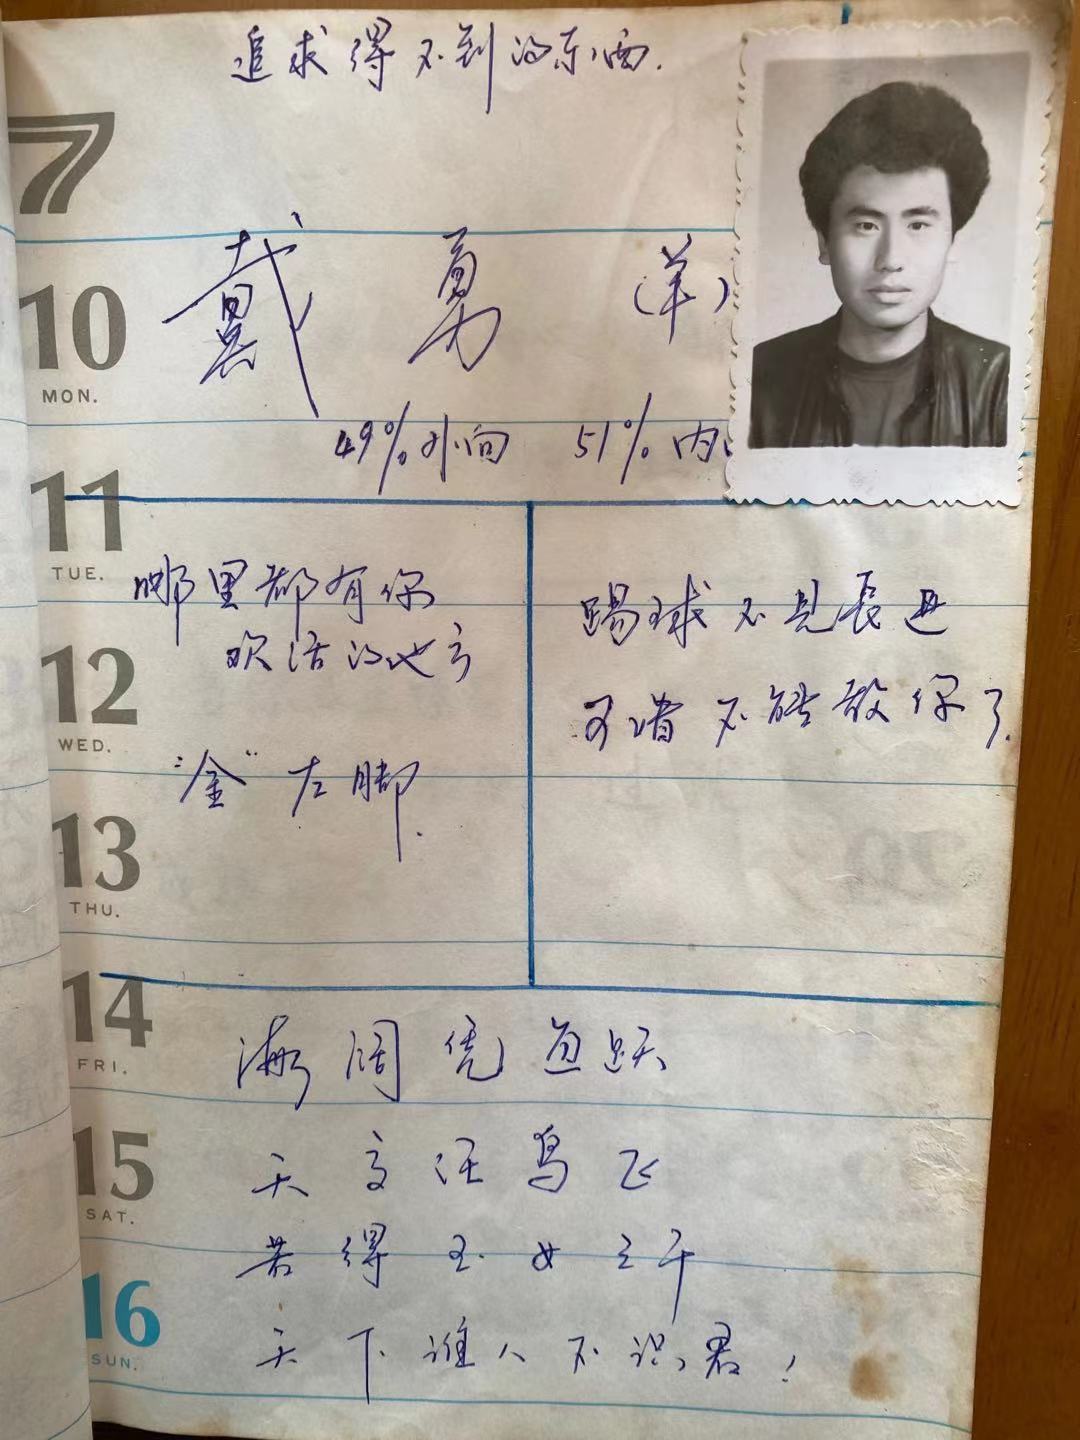 追求得不到的东西.
7
戴勇(羊)
10
MON.
49%外向 51%内
11
TUE.
哪里都有你
欢活的地方
"金"左脚.
踢球不见長进
可惜不能教你了.
12
WED.
13
THU.
14
FRI.
海阔凭鱼跃
天高任鸟飞
若得玉女之
天下谁人不识君!
15
SAT.
16
SUN.